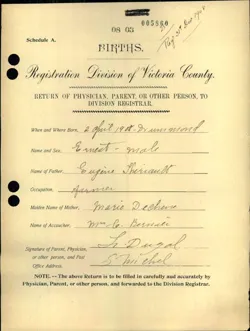 08 03
005880
Schedule A.
BIRTHS.
Registration Division of Victoria County.
RETURN OF PHYSICIAN, PARENT, OR OTHER PERSON, TO
DIVISION REGISTRAR.
When and Where Born, 2 April 1908 Drummond
Name and Sex, Ernest - male
Name of Father, Eugène Theriault
Occupation, farmer
Maiden Name of Mother, Marie
Name of Accoucher, Mrs C.
Signature of Parent, Physician,
or other person, and Post
Office Address, St Michel
NOTE.—The above Return is to be filled in carefully and accurately by
Physician, Parent, or other person, and forwarded to the Division Registrar.